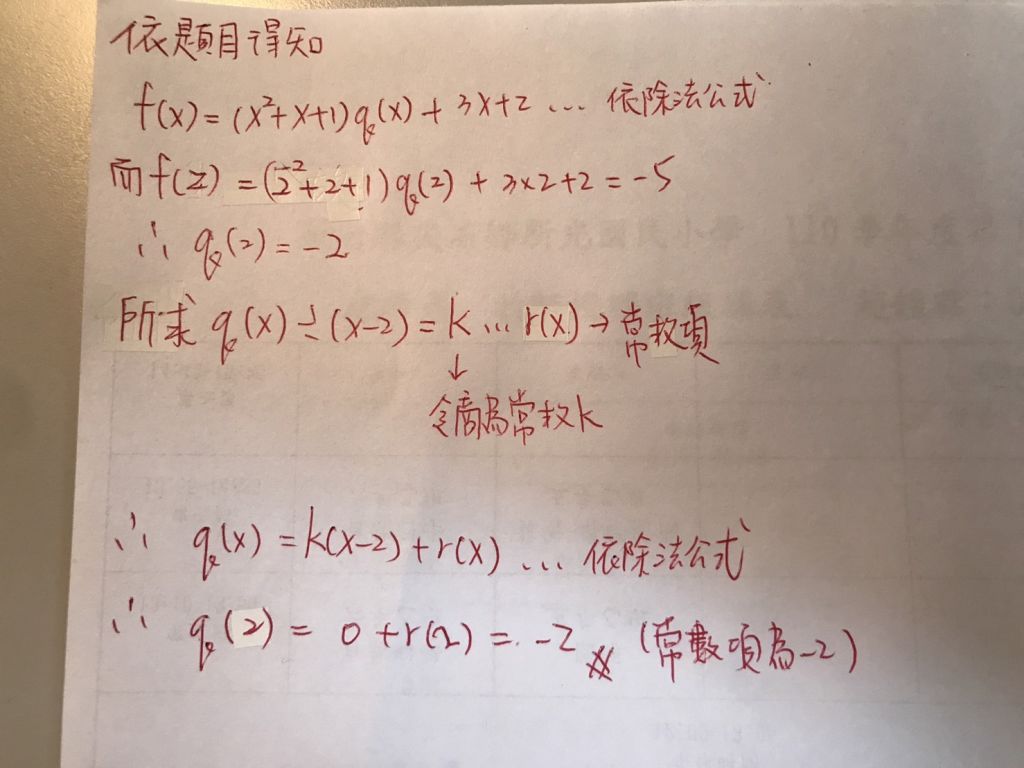 依題目得知
f(x)=(x²+x+1)q(x)+3x+2 … 依除法公式
而f(2)=(2²+2+1)q(2)+3×2+2=-5
∴ q(2)=-2
所求 q(x)÷(x-2)=k…r(x)→常数項
↓
令商為常数k
∴ q(x)=k(x-2)+r(x) … 依除法公式
∴ q(2)=0+r(2)=-2 (常數項為-2)